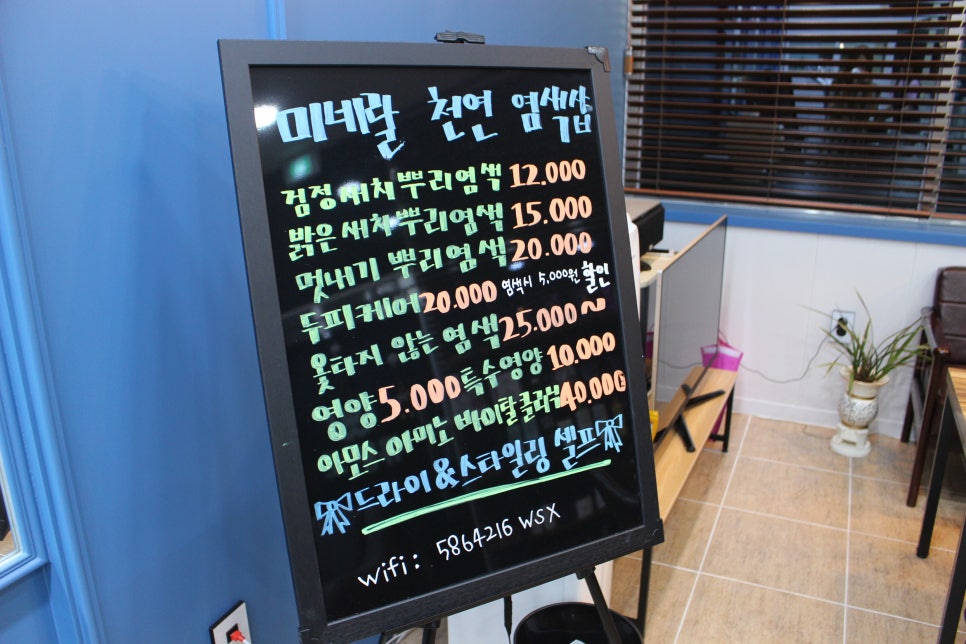 미네랄 천연 염색샵
검정새치뿌리염색 12.000
밝은새치뿌리염색 15.000
멋내기 뿌리염색 20.000
두피케어 20.000 염색시 5,000원 할인
옻타지 않는 염색 25.000~
영양 5.000 특수영양 10.000
아모스 아미노 바이탈클리닉 40.000
드라이&스타일링 셀프
wifi: 5864216 WSX